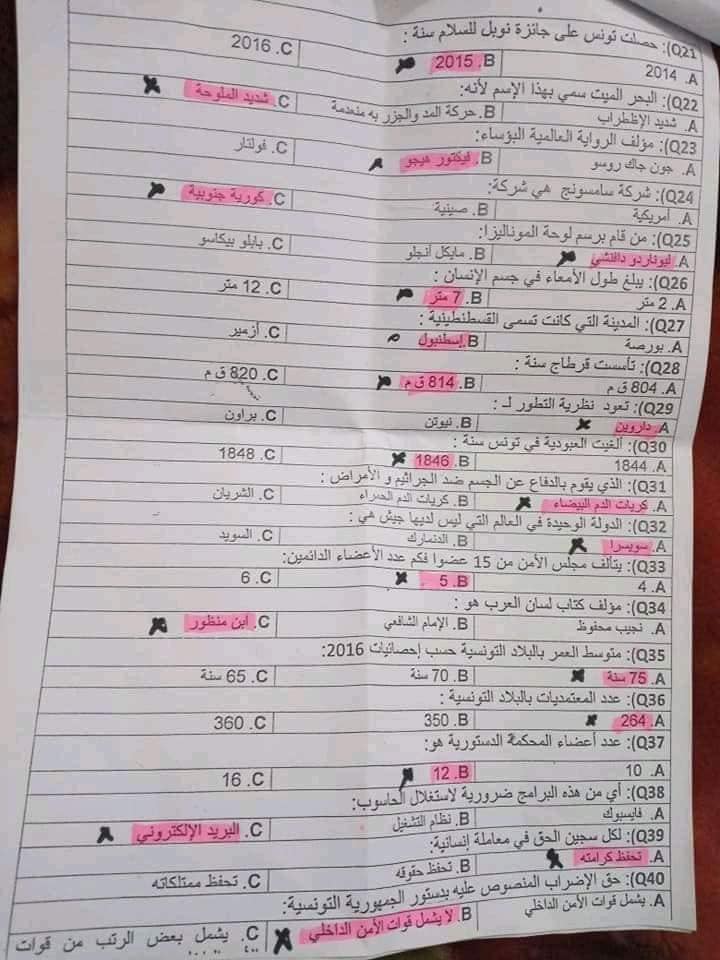 Q21): حصلت تونس على جائزة نوبل للسلام سنة :
A. 2014 B. 2015 C. 2016
Q22): البحر الميت سمي بهذا الإسم لأنه:
A. شديد الإظطراب B. حركة المد والجزر به منعدمة C. شديد الملوحة
Q23): مؤلف الرواية العالمية البؤساء:
A. جون جاك روسو B. فيكتور هيجو C. فولتار
Q24): شركة سامسونج هي شركة:
A. أمريكية B. صينية C. كورية جنوبية
Q25): من قام برسم لوحة الموناليزا:
A. ليوناردو دافنشي B. مايكل أنجلو C. بابلو بيكاسو
Q26): يبلغ طول الأمعاء في جسم الإنسان :
A. 2 متر B. 7 متر C. 12 متر
Q27): المدينة التي كانت تسمى القسطنطينية :
A. بورصة B. إسطنبول C. أزمير
Q28): تأسست قرطاج سنة :
A. 804 ق م B. 814 ق م C. 820 ق م
Q29): تعود نظرية التطور لـ :
A. داروين B. نيوتن C. براون
Q30): ألغيت العبودية في تونس سنة :
A. 1844 B. 1846 C. 1848
Q31): الذي يقوم بالدفاع عن الجسم ضد الجراثيم و الأمراض :
A. كريات الدم البيضاء B. كريات الدم الحمراء C. الشريان
Q32): الدولة الوحيدة في العالم التي ليس لديها جيش هي :
A. سويسرا B. الدنمارك C. السويد
Q33): يتألف مجلس الأمن من 15 عضوا فكم عدد الأعضاء الدائمين:
A. 4 B. 5 C. 6
Q34): مؤلف كتاب لسان العرب هو :
A. نجيب محفوظ B. الإمام الشافعي C. ابن منظور
Q35): متوسط العمر بالبلاد التونسية حسب إحصائيات 2016:
A. 75 سنة B. 70 سنة C. 65 سنة
Q36): عدد المعتمديات بالبلاد التونسية :
A. 264 B. 350 C. 360
Q37): عدد أعضاء المحكمة الدستورية هو:
A. 10 B. 12 C. 16
Q38): أي من هذه البرامج ضرورية لاستغلال الحاسوب:
A. فايسبوك B. نظام التشغيل C. البريد الإلكتروني
Q39): لكل سجين الحق في معاملة إنسانية:
A. تحفظ كرامته B. تحفظ حقوقه C. تحفظ ممتلكاته
Q40): حق الإضراب المنصوص عليه بدستور الجمهورية التونسية:
A. يشمل قوات الأمن الداخلي B. لا يشمل قوات الأمن الداخلي C. يشمل بعض الرتب من قوات